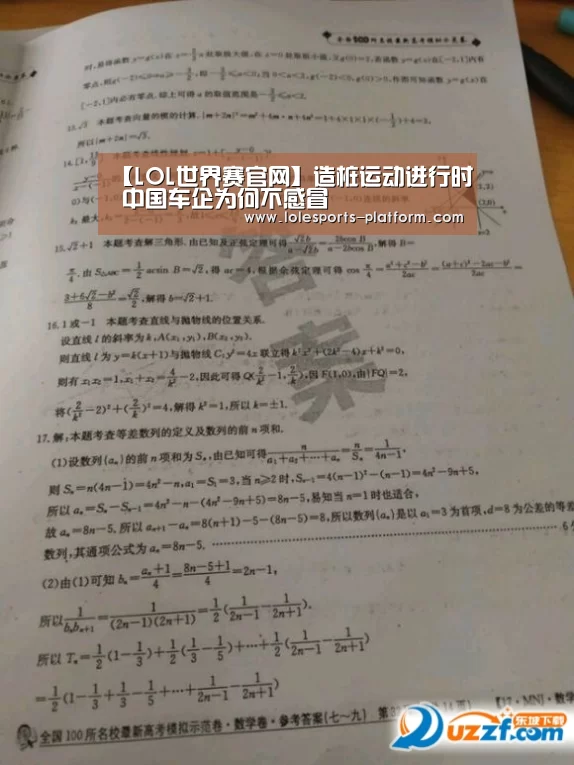 全国100所名校最新高考模拟示范卷
[-2,1]内必有零点.综上可得a的取值范围是-3/2≤a<2.
13.√3 本题考查向量的模的计算.|m+2n|²=m²+4m·n+4n²=1+4×1×1×(-1/2)+4=3,
所以|m+2n|=√3.
【LOL世界赛官网】造桩运动进行时
中国车企为何不感冒
www.lolesports-platform.com
15.√2+1 本题考查解三角形.由已知及正弦定理可得
,解得B=
π/4.由S△ABC=1/2 acsin B=√2,得ac=4,根据余弦定理可得cos π/4=(a²+c²-b²)/2ac=((a+c)²-2ac-b²)/2ac=
,解得b=√2+1.
16.1或-1 本题考查直线与抛物线的位置关系.
设直线l的斜率为k,A(x₁,y₁),B(x₂,y₂).
则直线l为y=k(x+1)与抛物线C:y²=4x联立得k²x²+(2k²-4)x+k²=0,
则有x₁x₂=1,x₁+x₂=4/k²-2,因此可得Q(2/k²-1,2/k),因F(1,0),由|FQ|=2,
将(2/k²-2)²+(2/k)²=4,解得k²=1,所以k=±1.
17.解:本题考查等差数列的定义及数列的前n项和.
(1)设数列{aₙ}的前n项和为Sₙ,由已知可得n/(a₁+a₂+…+aₙ)=n/Sₙ=1/(4n-1),
则Sₙ=n(4n-1)=4n²-n,a₁=S₁=3,当n≥2时,Sₙ₋₁=4(n-1)²-(n-1)=4n²-9n+5,
所以aₙ=Sₙ-Sₙ₋₁=4n²-n-(4n²-9n+5)=8n-5,易知当n=1时也适合,
故aₙ=8n-5.所以aₙ₊₁-aₙ=8(n+1)-5-(8n-5)=8,所以数列{aₙ}是以a₁=3为首项,d=8为公差的等差
数列,其通项公式为aₙ=8n-5.
(2)由(1)可知bₙ=(aₙ+1)/4=(8n-5+1)/4=2n-1,
所以1/(bₙbₙ₊₁)=1/((2n-1)(2n+1))=1/2(1/(2n-1)-1/(2n+1)).
所以Tₙ=1/2(1-1/3)+1/2(1/3-1/5)+…+1/2(1/(2n-1)-1/(2n+1))
=1/2(1-1/3+1/3-1/5+…+1/(2n-1)-1/(2n+1))
答案
全国100所名校最新高考模拟示范卷·数学卷·参考答案(七~九)
【17·MNJ·数学
东坡下载
uzzf.com